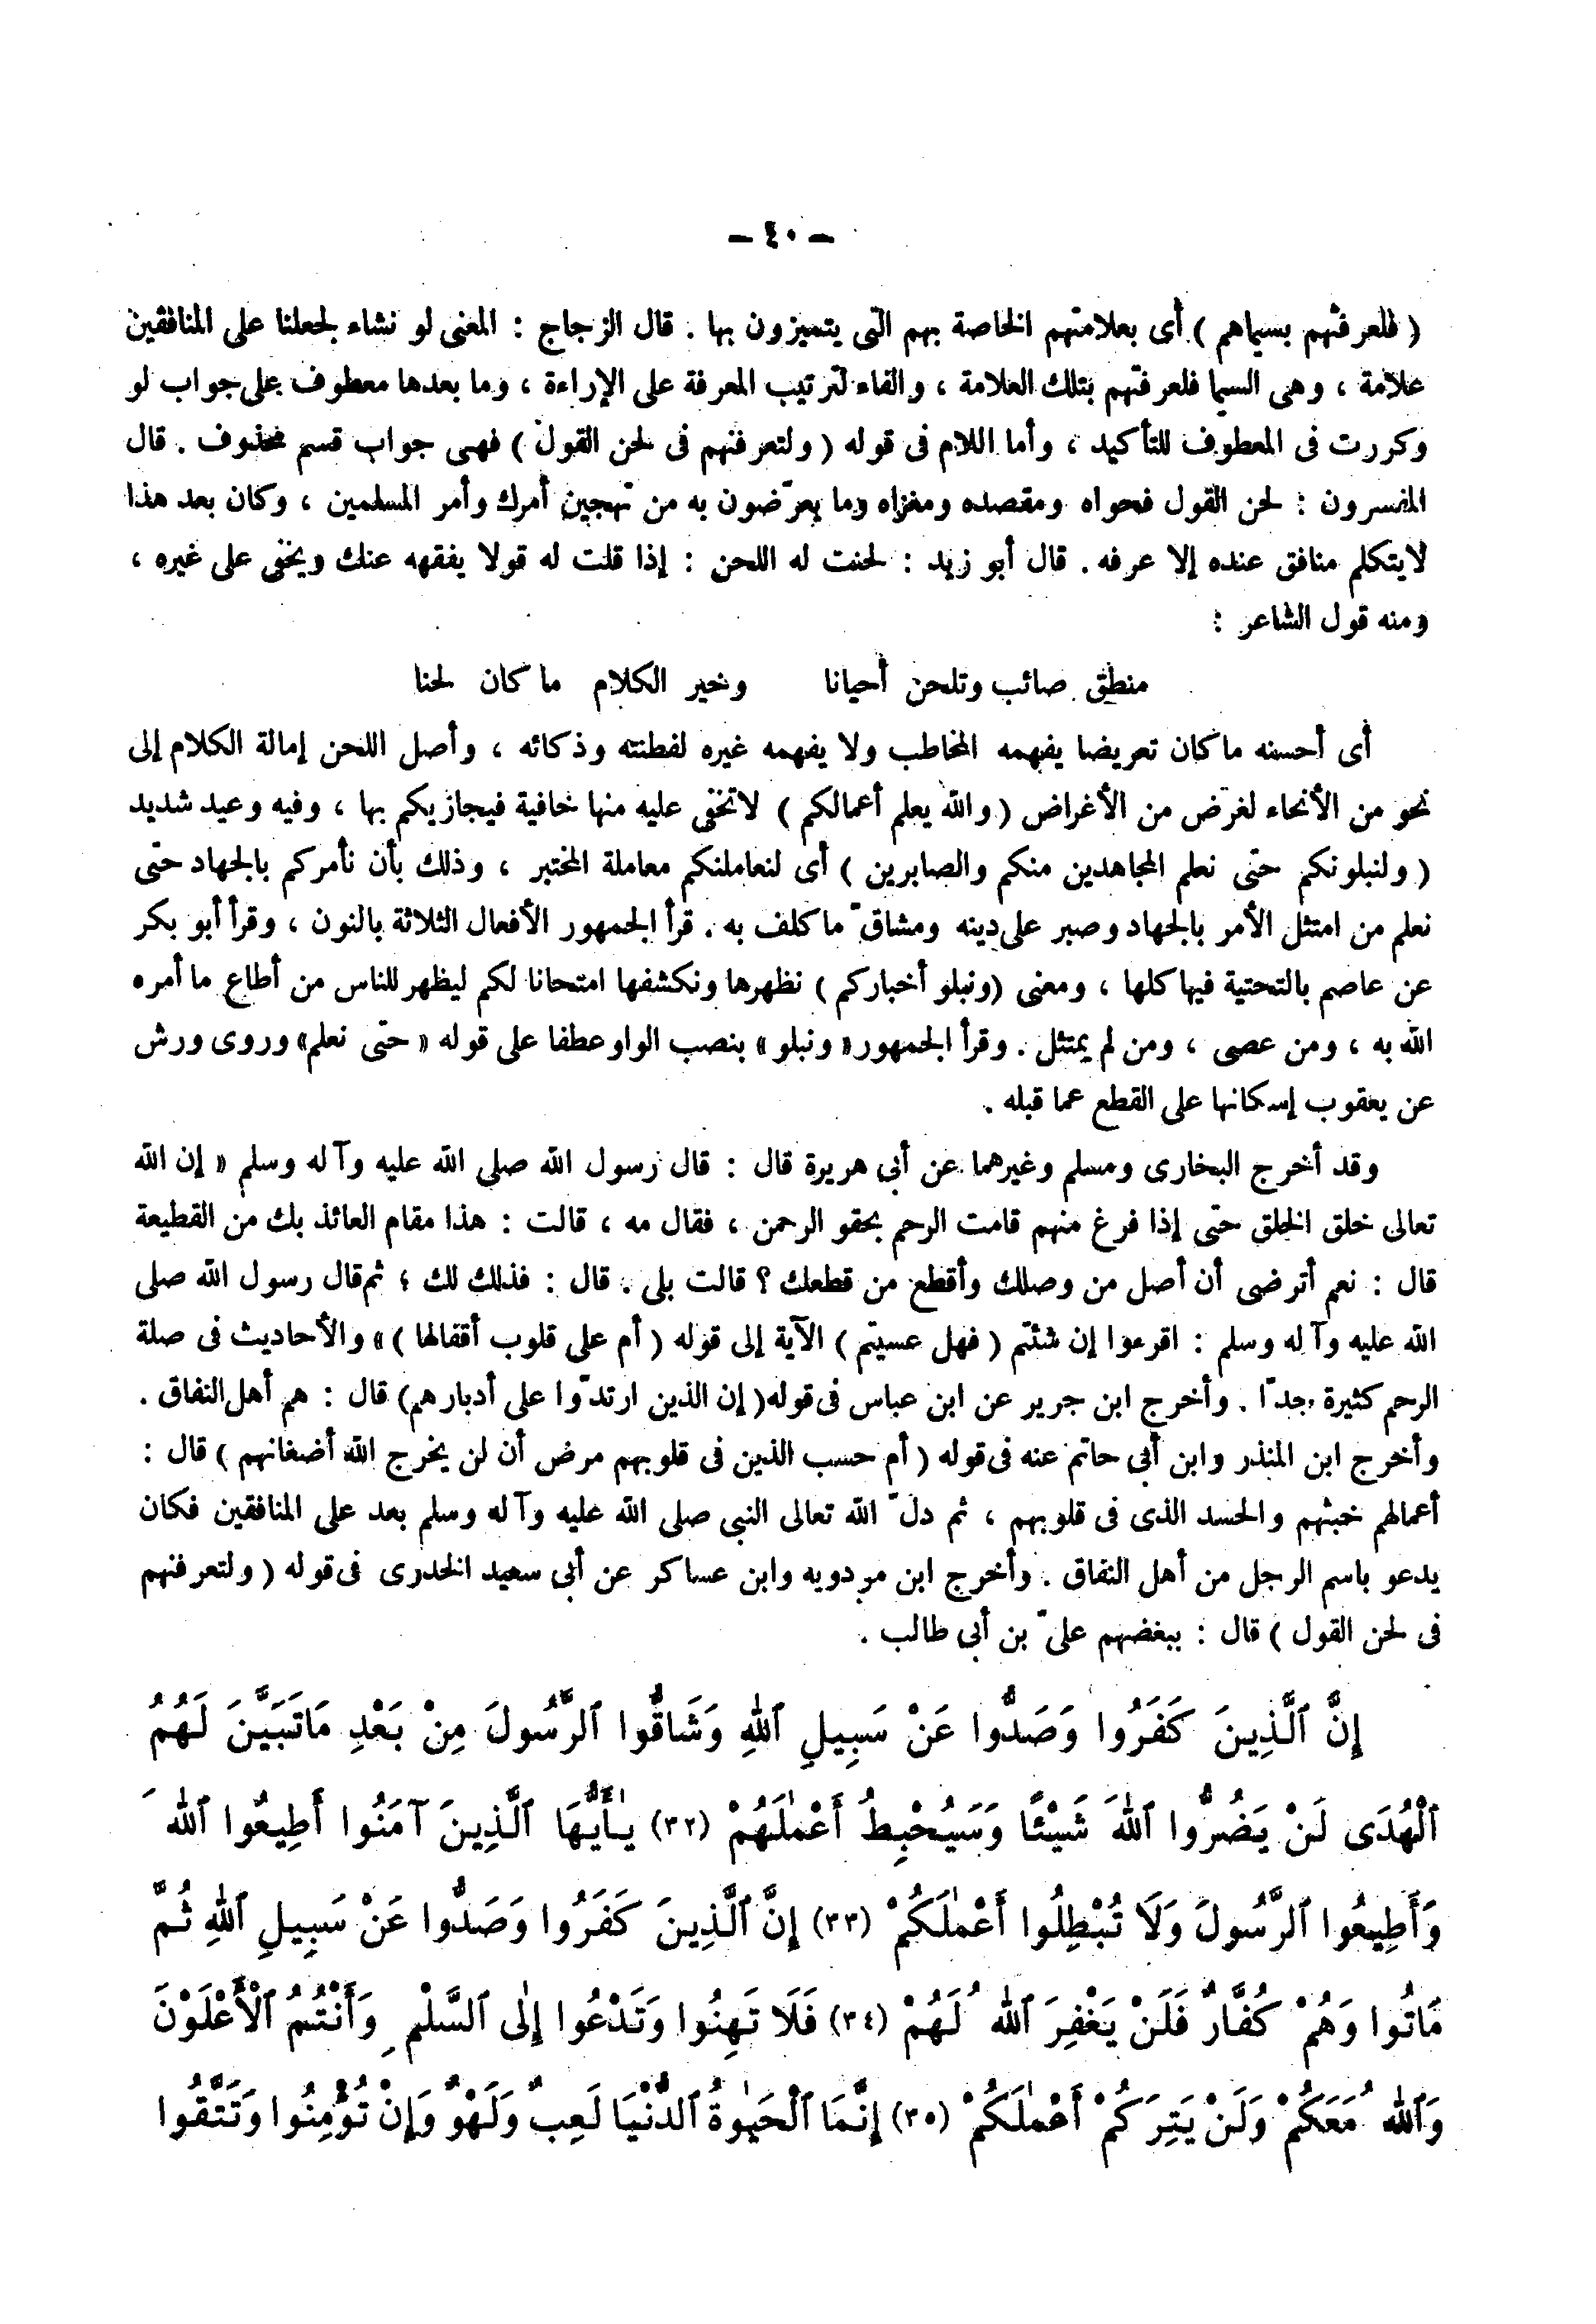 — ٤٠ —
( فلعرفتهم بسيماهم ) أى بعلامتهم الخاصة بهم التى يتميزون بها . قال الزجاج : المعنى لو نشاء لجعلنا على المنافقين
علامة ، وهى السيما فلعرفتهم بتلك العلامة ، والفاء لترتيب المعرفة على الإراءة ، وما بعدها معطوف على جواب لو
وكررت فى المعطوف للتأكيد ، وأما اللام فى قوله ( ولتعرفنهم فى لحن القول ) فهى جواب قسم محذوف . قال
المفسرون : لحن القول فحواه ومقصده ومغزاه وما يعرّضون به من تهجين أمرك وأمر المسلمين ، وكان بعد هذا
لايتكلم منافق عنده إلا عرفه . قال أبو زيد : لحنت له اللحن : إذا قلت له قولا يفقهه عنك ويخفى على غيره ،
ومنه قول الشاعر :
منطق صائب وتلحن أحيانا وخير الكلام ما كان لحنا
أى أحسنه ماكان تعريضا يفهمه المخاطب ولا يفهمه غيره لفطنته وذكائه ، وأصل اللحن إمالة الكلام إلى
نحو من الأنحاء لغرض من الأغراض ( والله يعلم أعمالكم ) لاتخفى عليه منها خافية فيجازيكم بها ، وفيه وعيد شديد
( ولنبلونكم حتى نعلم المجاهدين منكم والصابرين ) أى لنعاملنكم معاملة المختبر ، وذلك بأن نأمركم بالجهاد حتى
نعلم من امتثل الأمر بالجهاد وصبر على دينه ومشاقّ ماكلف به . قرأ الجمهور الأفعال الثلاثة بالنون ، وقرأ أبو بكر
عن عاصم بالتحتية فيها كلها ، ومعنى (ونبلو أخباركم ) نظهرها ونكشفها امتحانا لكم ليظهر للناس من أطاع ما أمره
الله به ، ومن عصى ، ومن لم يمتثل . وقرأ الجمهور « ونبلو » بنصب الواو عطفا على قوله « حتى نعلم» وروى ورش
عن يعقوب إسكانها على القطع عما قبله .
وقد أخرج البخارى ومسلم وغيرهما عن أبى هريرة قال : قال رسول الله صلى الله عليه وآله وسلم « إن الله
تعالى خلق الخلق حتى إذا فرغ منهم قامت الرحم بحقو الرحمن ، فقال مه ، قالت : هذا مقام العائذ بك من القطيعة
قال : نعم أترضى أن أصل من وصلك وأقطع من قطعك ؟ قالت بلى . قال : فذلك لك ؛ ثم قال رسول الله صلى
الله عليه وآله وسلم : اقرءوا إن شئتم ( فهل عسيتم ) الآية إلى قوله ( أم على قلوب أقفالها )» والأحاديث فى صلة
الرحم كثيرة جدّا . وأخرج ابن جرير عن ابن عباس فى قوله( إن الذين ارتدّوا على أدبارهم) قال : هم أهل النفاق .
وأخرج ابن المنذر وابن أبى حاتم عنه فى قوله ( أم حسب الذين فى قلوبهم مرض أن لن يخرج الله أضغانهم ) قال :
أعمالهم خبثهم والحسد الذى فى قلوبهم ، ثم دلّ الله تعالى النبى صلى الله عليه وآله وسلم بعد على المنافقين فكان
يدعو باسم الرجل من أهل النفاق . وأخرج ابن مردويه وابن عساكر عن أبى سعيد الخدرى فى قوله ( ولتعرفنهم
فى لحن القول ) قال : ببغضهم علىّ بن أبى طالب .
إِنَّ ٱلَّذِينَ كَفَرُوا وَصَدُّوا عَنْ سَبِيلِ ٱللهِ وَشَاقُّوا ٱلرَّسُولَ مِنْ بَعْدِ مَاتَبَيَّنَ لَهُمُ
ٱلْهُدَى لَنْ يَضُرُّوا ٱللهَ شَيْئًا وَسَيُحْبِطُ أَعْمٰلَهُمْ (٣٢) يٰأَيُّهَا ٱلَّذِينَ آمَنُوا أَطِيعُوا ٱللهَ
وَأَطِيعُوا ٱلرَّسُولَ وَلَا تُبْطِلُوا أَعْمٰلَكُمْ (٣٣) إِنَّ ٱلَّذِينَ كَفَرُوا وَصَدُّوا عَنْ سَبِيلِ ٱللهِ ثُمَّ
مَاتُوا وَهُمْ كُفَّارٌ فَلَنْ يَغْفِرَ ٱللهُ لَهُمْ (٣٤) فَلَا تَهِنُوا وَتَدْعُوا إِلٰى ٱلسَّلْمِ وَأَنْتُمُ ٱلْأَعْلَوْنَ
وَٱللهُ مَعَكُمْ وَلَنْ يَتِرَكُمْ أَعْمٰلَكُمْ (٣٥) إِنَّمَا ٱلْحَيٰوةُ ٱلدُّنْيَا لَعِبٌ وَلَهْوٌ وَإِنْ تُؤْمِنُوا وَتَتَّقُوا